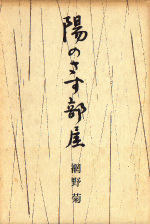 陽のさす部屋
網野菊